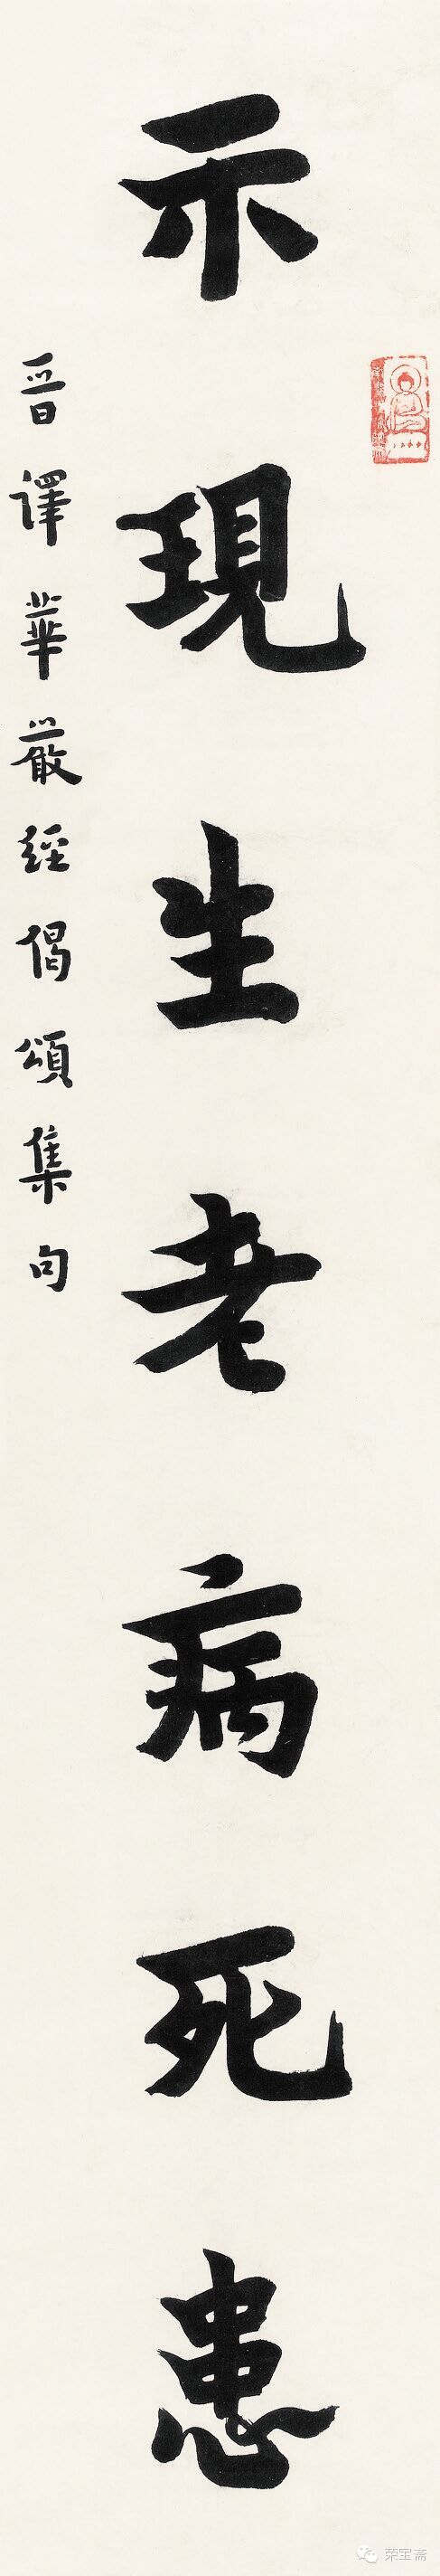 示現生老病死患
晉譯華嚴經偈頌集句
荣宝斋